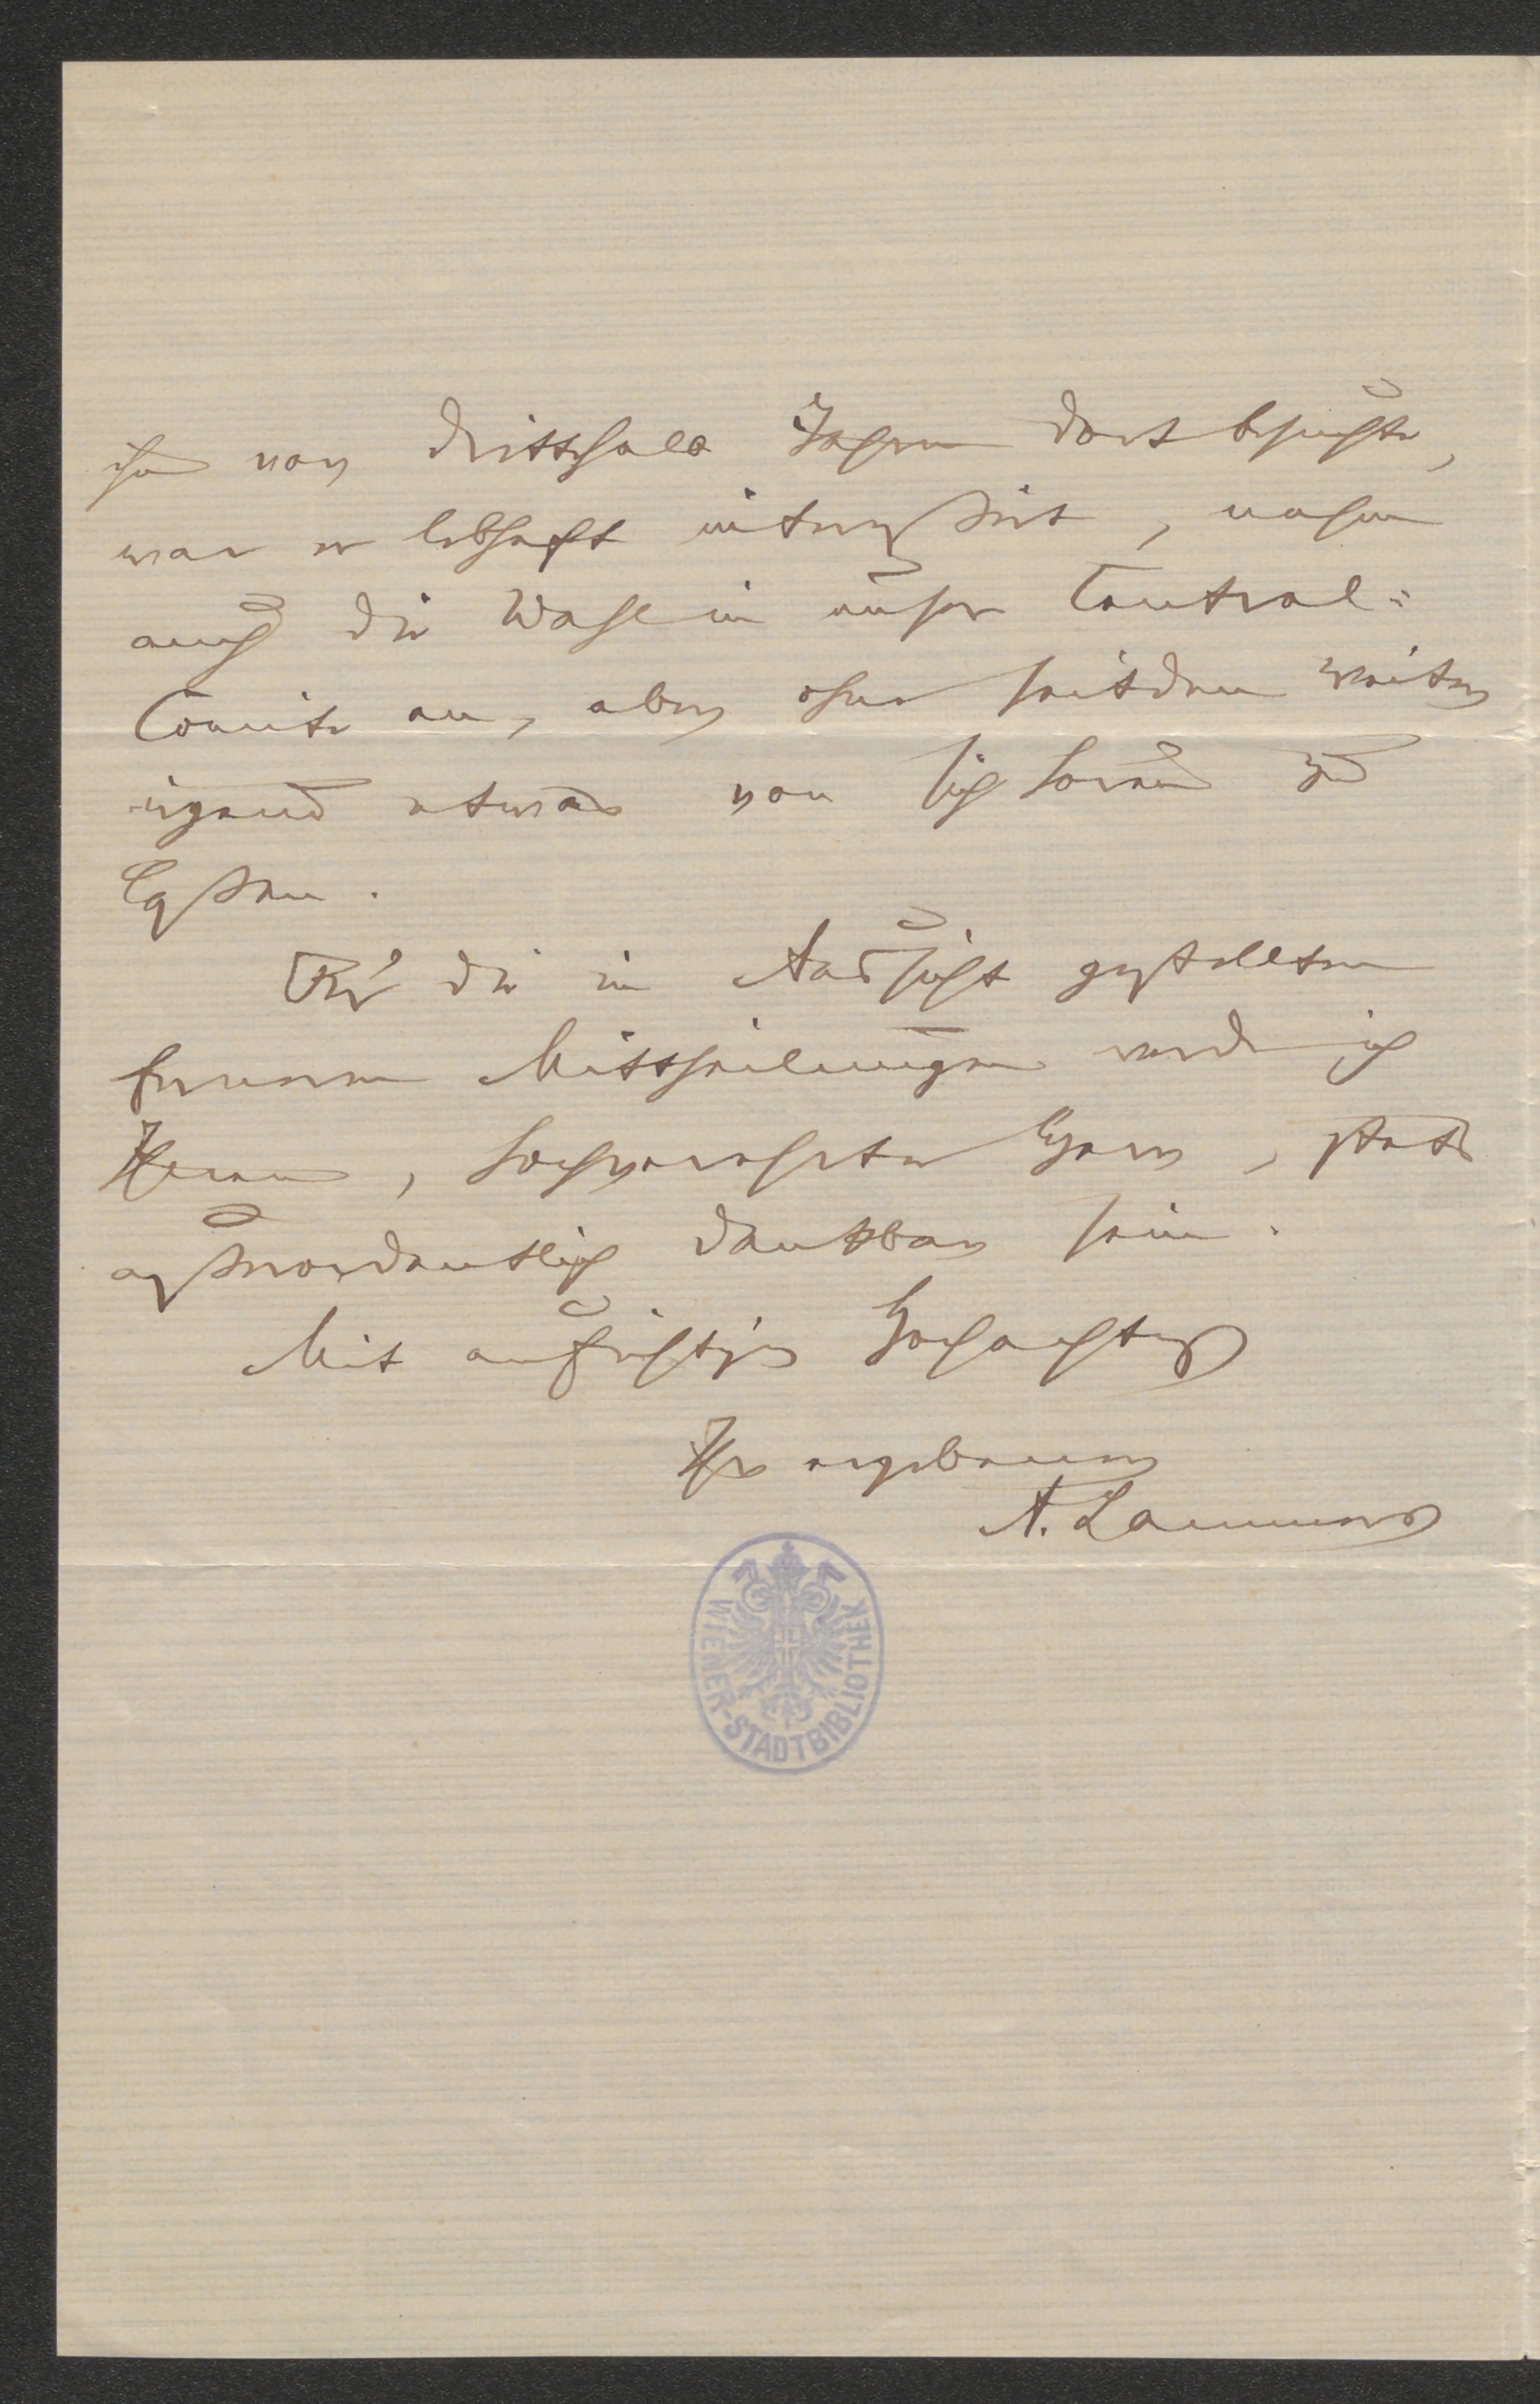 ihn vor dritthalb Jahren dort besuchte,
war er lebhaft interessirt, nahm
auch die Wahl in unser Central-
Comité an, aber ohne seitdem weiter
irgend etwas von sich hören zu
lassen.
Für die in Aussicht gestellten
ferneren Mittheilungen werde ich
Ihnen, hochverehrter Herr, stets
ausserordentlich dankbar sein.
Mit aufrichtiger Hochachtung
Ihr ergebener
A. Lammers
WIENER-STADTBIBLIOTHEK